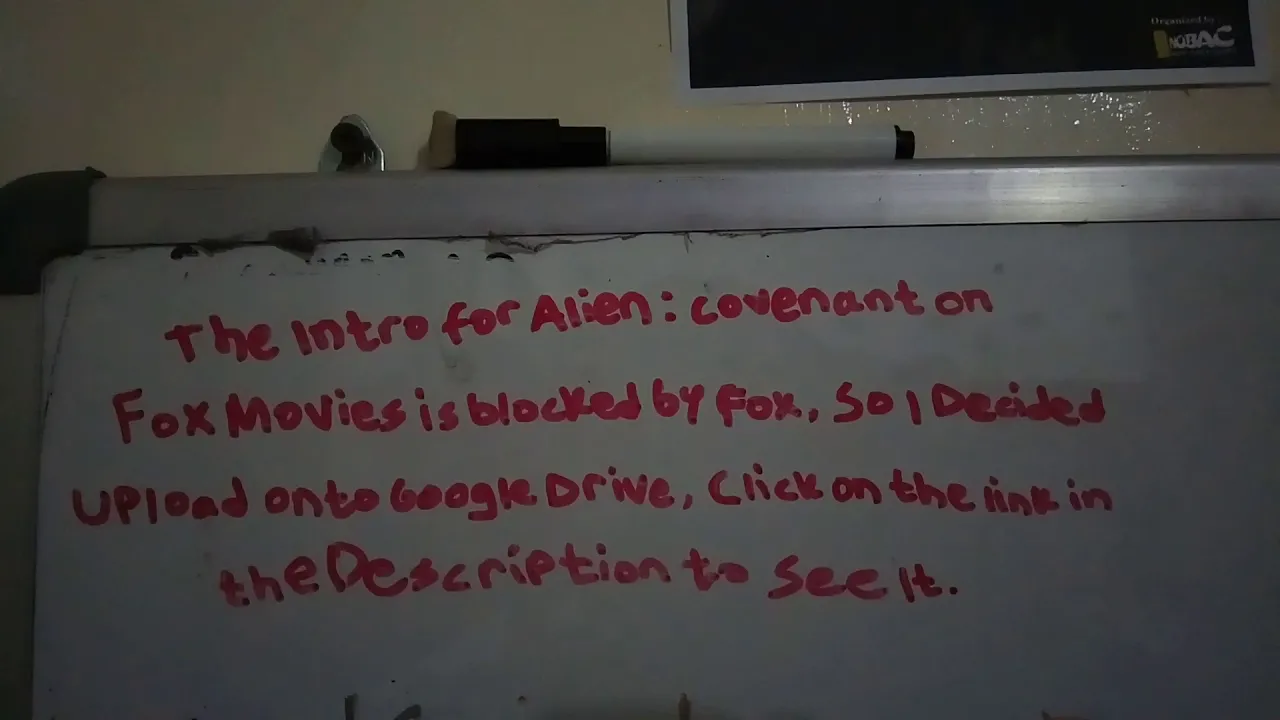 Organized by
NOBAC
The Intro for Alien: covenant on
Fox Movies is blocked by Fox, So I Decided
Upload onto Google Drive, Click on the link in
the Description to See It.